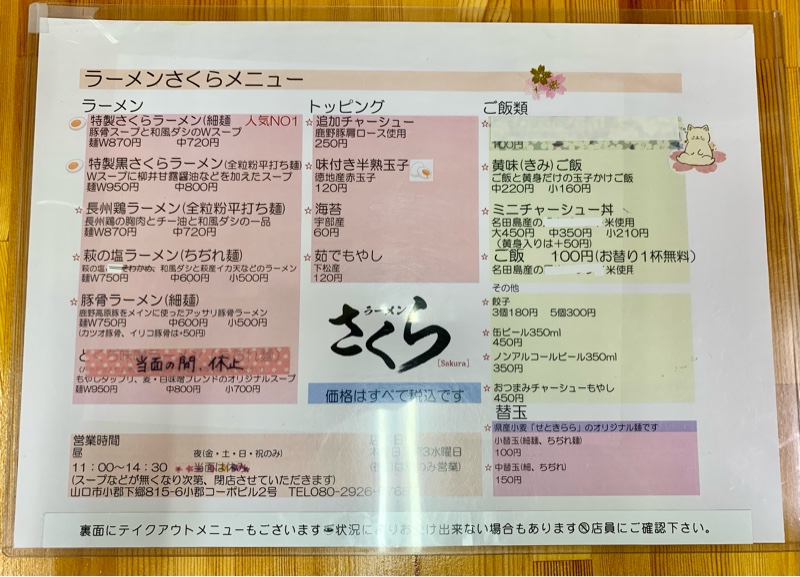 ラーメンさくらメニュー
ラーメン
特製さくらラーメン(細麺 人気NO1
豚骨スープと和風ダシのWスープ
麺W870円 中720円
特製黒さくらラーメン(全粒粉平打ち麺)
Wスープに柳井甘露醤油などを加えたスープ
麺W950円 中800円
☆長州鶏ラーメン(全粒粉平打ち麺)
長州鶏の胸肉とチー油と和風ダシの一品
麺W870円 中720円
☆萩の塩ラーメン(ちぢれ麺)
萩の塩 そわかめ、和風ダシと萩産イカ天などのラーメン
麺W750円 中600円 小500円
☆豚骨ラーメン(細麺)
鹿野高原豚をメインに使ったアッサリ豚骨ラーメン
麺W750円 中600円 小500円
(カツオ豚骨、イリコ豚骨は+50円)
当面の間、休止
もやしタップリ、麦・白味噌ブレンドのオリジナルスープ
麺W950円 中800円 小700円
トッピング
☆追加チャーシュー
鹿野豚肩ロース使用
250円
☆味付き半熟玉子
徳地産赤玉子
120円
☆海苔
宇部産
60円
☆茹でもやし
下松産
120円
ラーメン
さくら
[Sakura]
価格はすべて税込です
ご飯類
☆
100円
☆黄味(きみ)ご飯
ご飯と黄身だけの玉子かけご飯
中220円 小160円
☆ミニチャーシュー丼
名田島産の 米使用
大450円 中350円 小210円
(黄身入りは+50円)
☆ご飯 100円(お替り1杯無料)
名田島産の 米使用
その他
☆餃子
3個180円 5個300円
☆缶ビール350ml
450円
☆ノンアルコールビール350ml
350円
☆おつまみチャーシューもやし
450円
替玉
☆県産小麦「せときらら」のオリジナル麺です
小替玉(細麺、ちぢれ麺)
100円
☆中替玉(細、ちぢれ)
150円
営業時間
昼 夜(金・土・日・祝のみ)
11:00~14:30 当面は休み
第3水曜日
のみ営業)
(スープなどが無くなり次第、閉店させていただきます)
山口市小郡下郷815-6小郡コーポビル2号 TEL080-2926-
裏面にテイクアウトメニューもございます 状況に お 出来ない場合もあります 店員にご確認下さい。